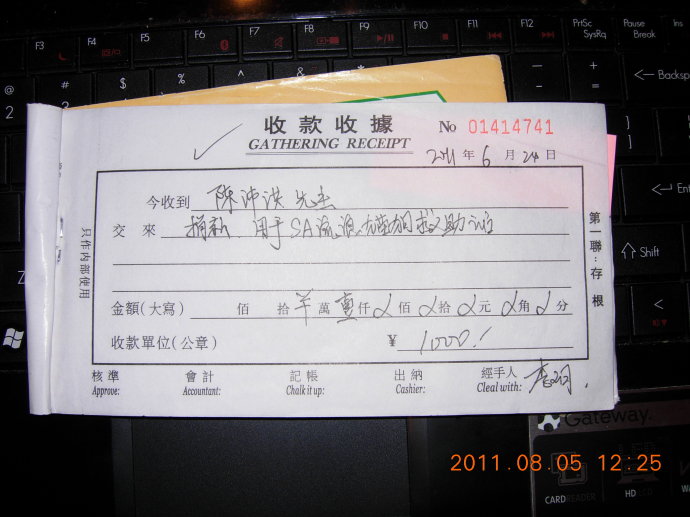 F3 F4 F5 F6 F7 F8 F9 F10 F11 F12 PrtSc SysRq Pause Break Ins
@ 2 $ % ^ & ( - + = Backsp
收款收據
GATHERING RECEIPT
No 01414741
2011 年 6 月 24 日
今收到 陳沛洪 先生
交來 捐款 用于SA流浪
金額(大寫) 佰 拾 羊 萬 壹 仟 佰 拾 元 角 分
收款單位(公章) ¥ 1000.-
核準 會計 記帳 出納 經手人
Approve: Accountant: Chalk it up: Cashier: Cleal with:
只作內部使用
第一聯:存根
Shift
Gateway
CARD READER HD
2011.08.05 12:25